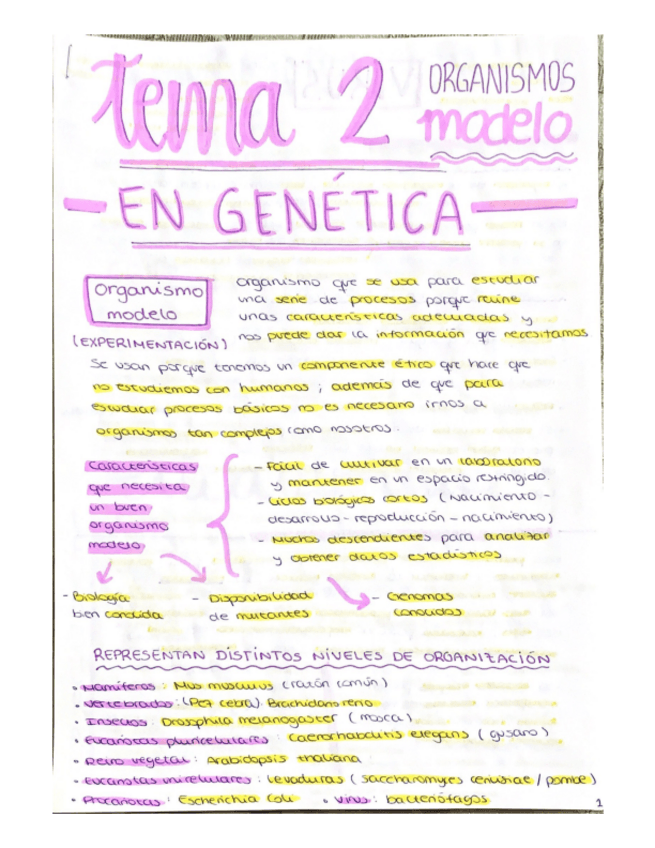 tema 2 ORGANISMOS
modelo
EN GENÉTICA
Organismo
modelo
(EXPERIMENTACIÓN)
organismo que se usa para estudiar
una serie de procesos porque reúne
unas características adecuadas y
nos puede dar la información que necesitamos
Se usan porque tenemos un componente ético que hace que
no estudiemos con humanos ; además de que para
estudiar procesos básicos no es necesario irnos a
organismos tan complejos como nosotros.
Características
que necesita
un buen
organismo
modelo
- Fácil de cultivar en un laboratorio
y mantener en un espacio restringido.
- Ciclos biológicos cortos (nacimiento -
desarrollo - reproducción - nacimiento)
- Muchos descendientes para analizar
y obtener datos estadísticos
- Biología
bien conocida
- Disponibilidad
de mutantes
- Genomas
conocidos
REPRESENTAN DISTINTOS NIVELES DE ORGANIZACIÓN
• Mamíferos : Mus musculus (ratón común)
• Vertebrados : (Pez cebra). Brachidano rerio
• Insectos : Drosophila melanogaster ( mosca ).
• Eucariotas pluricelulares : Caenorhabditis elegans ( gusano )
• Reino vegetal : Arabidopsis thaliana
• Eucariotas unicelulares : Levaduras ( saccharomyces cerevisiae / pombe )
• Procariotas : Escherichia Coli • Virus : bacteriófagos
1